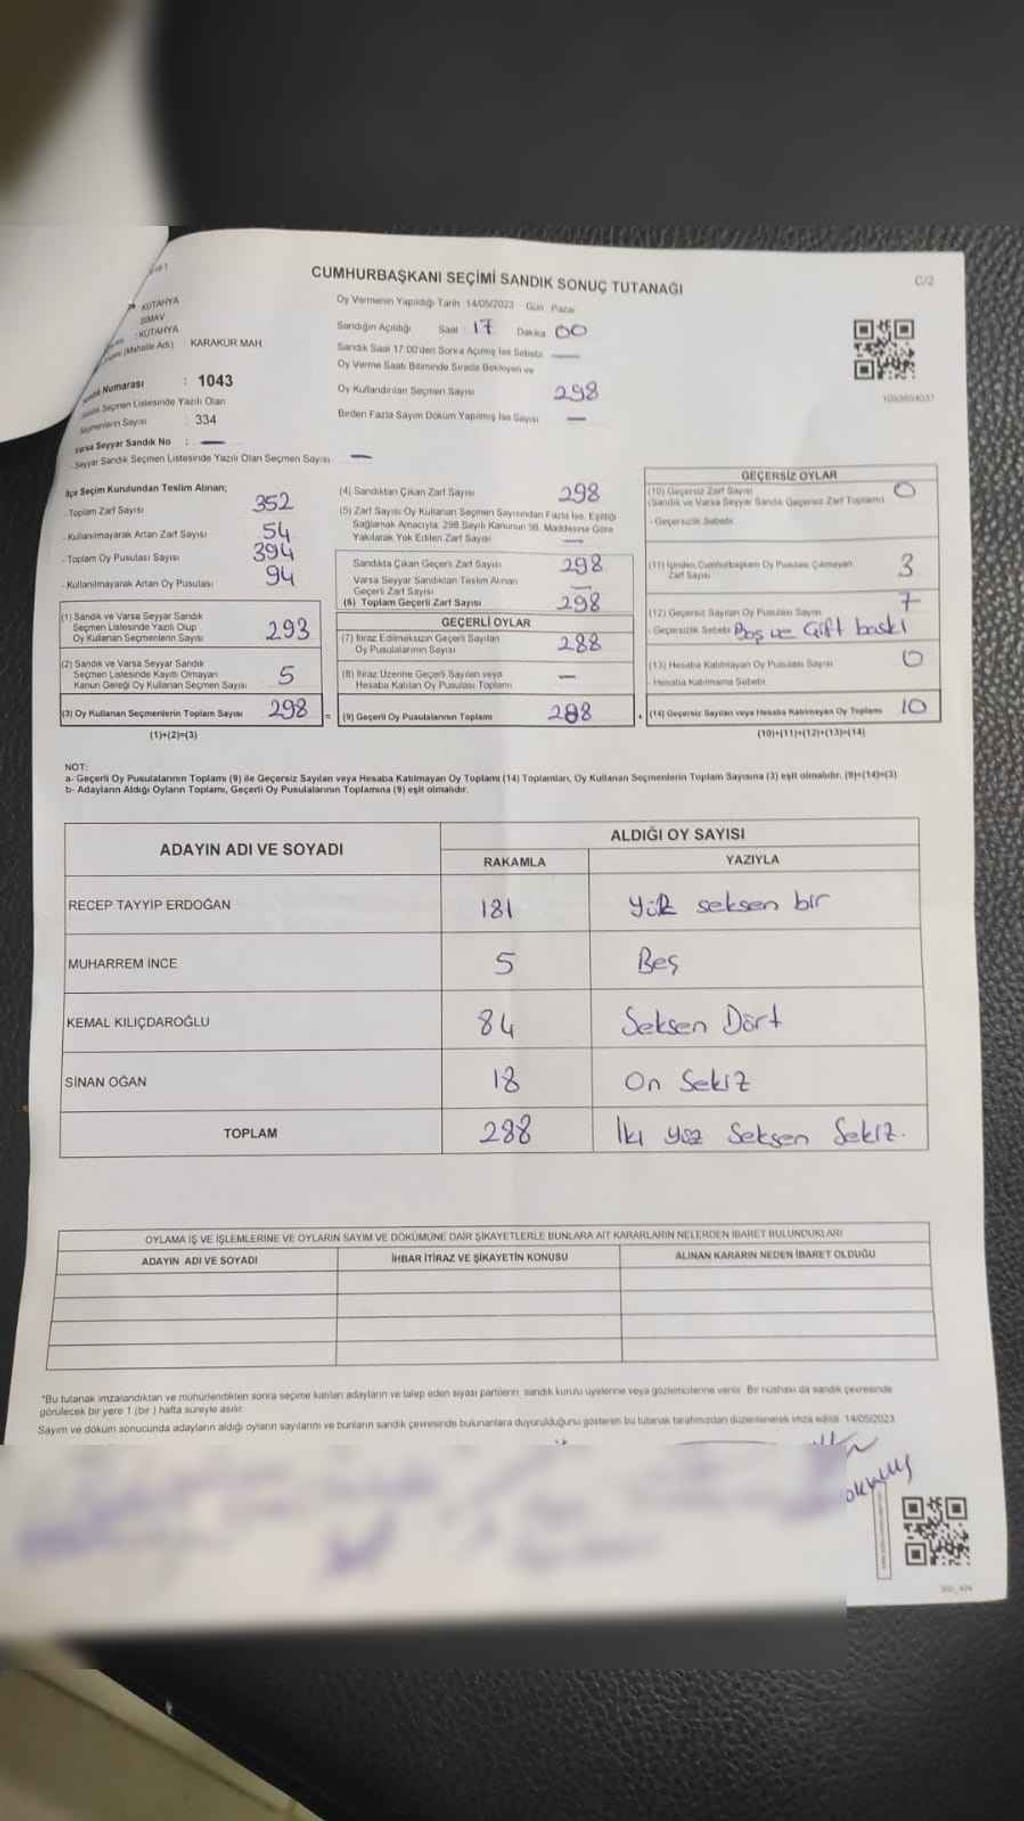 CUMHURBAŞKANI SEÇİMİ SANDIK SONUÇ TUTANAĞI
C/2
KÜTAHYA
SİMAV
KÜTAHYA
(Mahalle Adı) : KARAKÜR MAH
Numarası : 1043
Seçmen Listesinde Yazılı Olan
Seçmenlerin Sayısı : 334
Varsa Seyyar Sandık No : —
Seyyar Sandık Seçmen Listesinde Yazılı Olan Seçmen Sayısı —
Oy Vermenin Yapıldığı Tarih 14/05/2023 Gün Pazar
Sandığın Açıldığı Saat 17 Dakika 00
Sandık Saat 17.00'den Sonra Açılmış İse Sebebi —
Oy Verme Saati Bitiminde Sırada Bekleyen ve
Oy Kullandırılan Seçmen Sayısı 298
Birden Fazla Sayım Döküm Yapılmış İse Sayısı —
İlçe Seçim Kurulundan Teslim Alınan;
- Toplam Zarf Sayısı 352
- Kullanılmayarak Artan Zarf Sayısı 54
- Toplam Oy Pusulası Sayısı 394
- Kullanılmayarak Artan Oy Pusulası 94
(1) Sandık ve Varsa Seyyar Sandık
Seçmen Listesinde Yazılı Olup
Oy Kullanan Seçmenlerin Sayısı 293
(2) Sandık ve Varsa Seyyar Sandık
Seçmen Listesinde Kayıtlı Olmayan
Kanun Gereği Oy Kullanan Seçmen Sayısı 5
(3) Oy Kullanan Seçmenlerin Toplam Sayısı 298
(1)+(2)=(3)
(4) Sandıktan Çıkan Zarf Sayısı 298
(5) Zarf Sayısı Oy Kullanan Seçmen Sayısından Fazla İse, Eşitliği
Sağlamak Amacıyla; 298 Sayılı Kanunun 98. Maddesine Göre
Yakılarak Yok Edilen Zarf Sayısı —
Sandıkta Çıkan Geçerli Zarf Sayısı 298
Varsa Seyyar Sandıktan Teslim Alınan
Geçerli Zarf Sayısı —
(6) Toplam Geçerli Zarf Sayısı 298
GEÇERLİ OYLAR
(7) İtiraz Edilmeksizin Geçerli Sayılan
Oy Pusulalarının Sayısı 288
(8) İtiraz Üzerine Geçerli Sayılan veya
Hesaba Katılan Oy Pusulası Toplamı —
= (9) Geçerli Oy Pusulalarının Toplamı 288
GEÇERSİZ OYLAR
(10) Geçersiz Zarf Sayısı 0
(Sandık ve Varsa Seyyar Sandık Geçersiz Zarf Toplamı)
- Geçersizlik Sebebi
(11) İçinden Cumhurbaşkanı Oy Pusulası Çıkmayan
Zarf Sayısı 3
(12) Geçersiz Sayılan Oy Pusulası Sayısı 7
- Geçersizlik Sebebi Boş ve Çift baskı
(13) Hesaba Katılmayan Oy Pusulası Sayısı 0
- Hesaba Katılmama Sebebi
+ (14) Geçersiz Sayılan veya Hesaba Katılmayan Oy Toplamı 10
(10)+(11)+(12)+(13)=(14)
NOT:
a- Geçerli Oy Pusulalarının Toplamı (9) ile Geçersiz Sayılan veya Hesaba Katılmayan Oy Toplamı (14) Toplamları, Oy Kullanan Seçmenlerin Toplam Sayısına (3) eşit olmalıdır. (9)+(14)=(3)
b- Adayların Aldığı Oyların Toplamı, Geçerli Oy Pusulalarının Toplamına (9) eşit olmalıdır.
ADAYIN ADI VE SOYADI
ALDIĞI OY SAYISI
RAKAMLA YAZIYLA
RECEP TAYYİP ERDOĞAN 181 Yüz seksen bir
MUHARREM İNCE 5 Beş
KEMAL KILIÇDAROĞLU 84 Seksen Dört
SİNAN OĞAN 18 On Sekiz
TOPLAM 288 İki yüz Seksen Sekiz.
OYLAMA İŞ VE İŞLEMLERİNE VE OYLARIN SAYIM VE DÖKÜMÜNE DAİR ŞİKAYETLERLE BUNLARA AİT KARARLARIN NELERDEN İBARET BULUNDUKLARI
ADAYIN ADI VE SOYADI İHBAR İTİRAZ VE ŞİKAYETİN KONUSU ALINAN KARARIN NEDEN İBARET OLDUĞU
*Bu tutanak imzalandıktan ve mühürlendikten sonra seçime katılan adayların ve talep eden siyasi partilerin, sandık kurulu üyelerine veya gözlemcilerine verilir. Bir nüshası da sandık çevresinde
görülecek bir yere 1 (bir) hafta süreyle asılır.
Sayım ve döküm sonucunda adayların aldığı oyların sayılarını ve bunların sandık çevresinde bulunanlara duyurulduğunu gösteren bu tutanak tarafımızdan düzenlenerek imza edildi. 14/05/2023